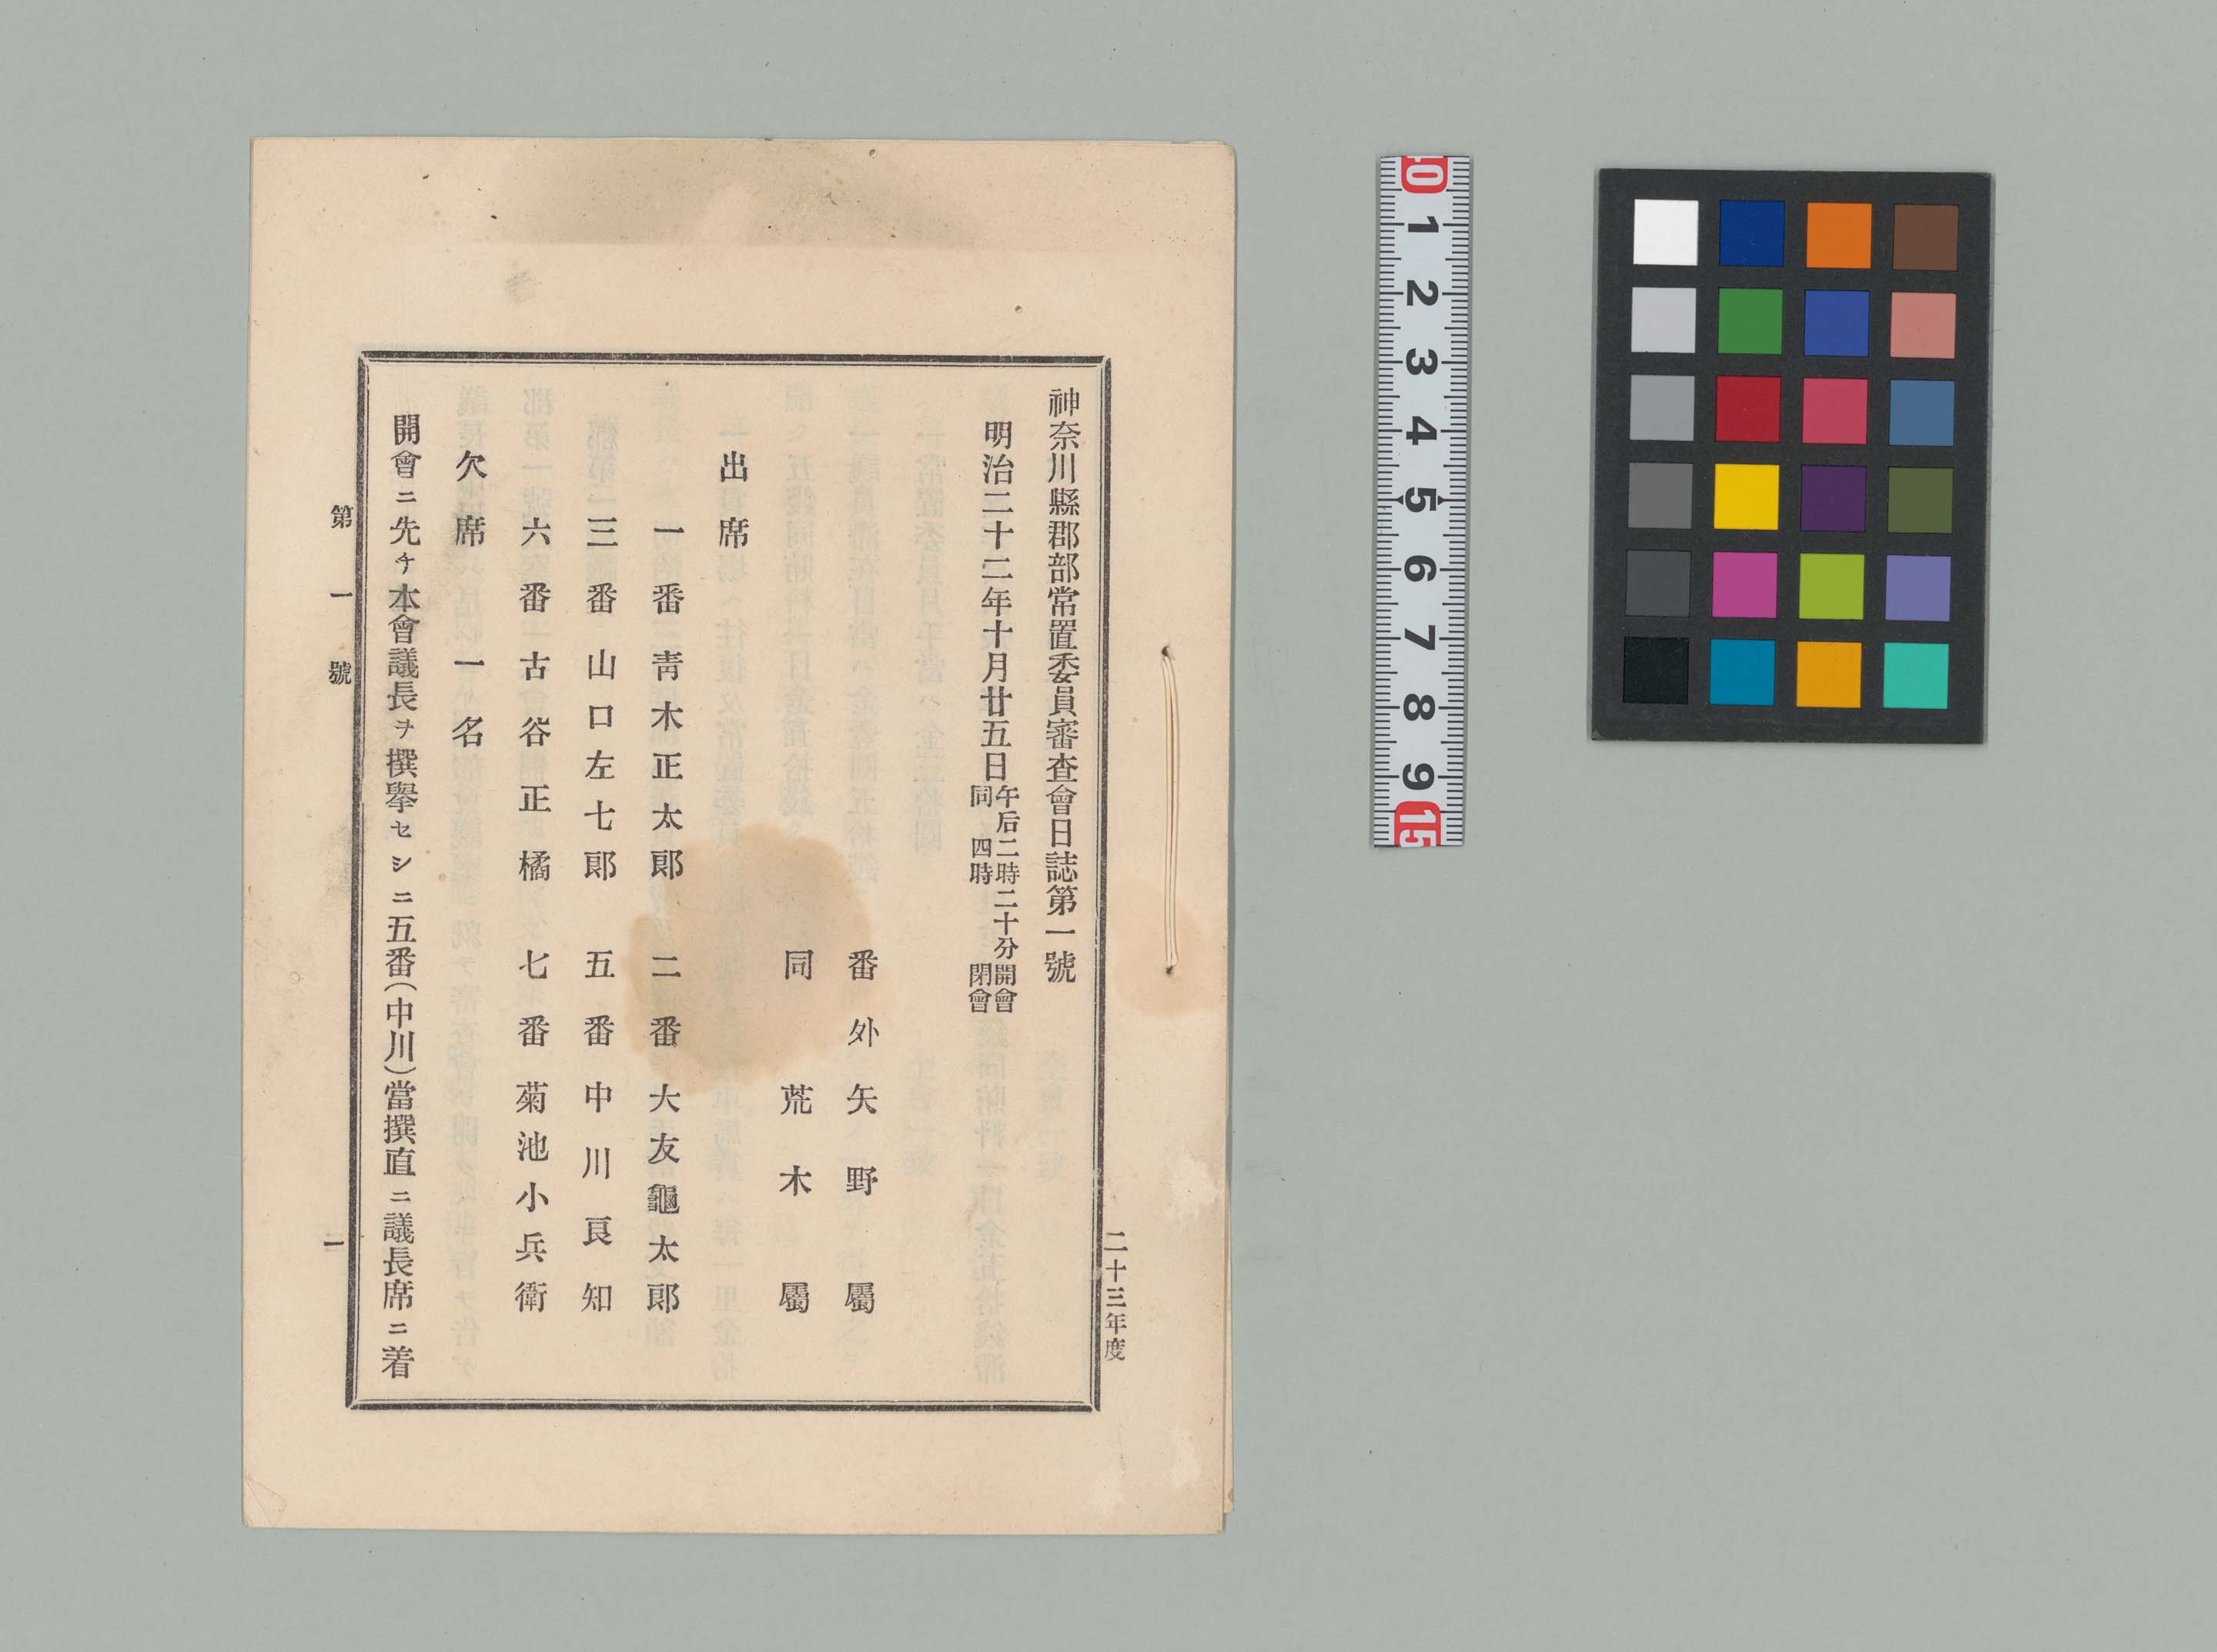 二十三年度
神奈川縣郡部常置委員審查會日誌第一號
明治二十二年十月廿五日午后二時二十分開會
同四時閉會
番外矢野屬
同荒木屬
出席
一番靑木正太郎　二番大友龜太郎
三番山口左七郎　五番中川良知
六番古谷正橘　七番菊池小兵衛
欠席一名
開會ニ先チ本會議長ヲ撰擧セシニ五番(中川)當撰直ニ議長席ニ着
第一號
一
10 1 2 3 4 5 6 7 8 9 15